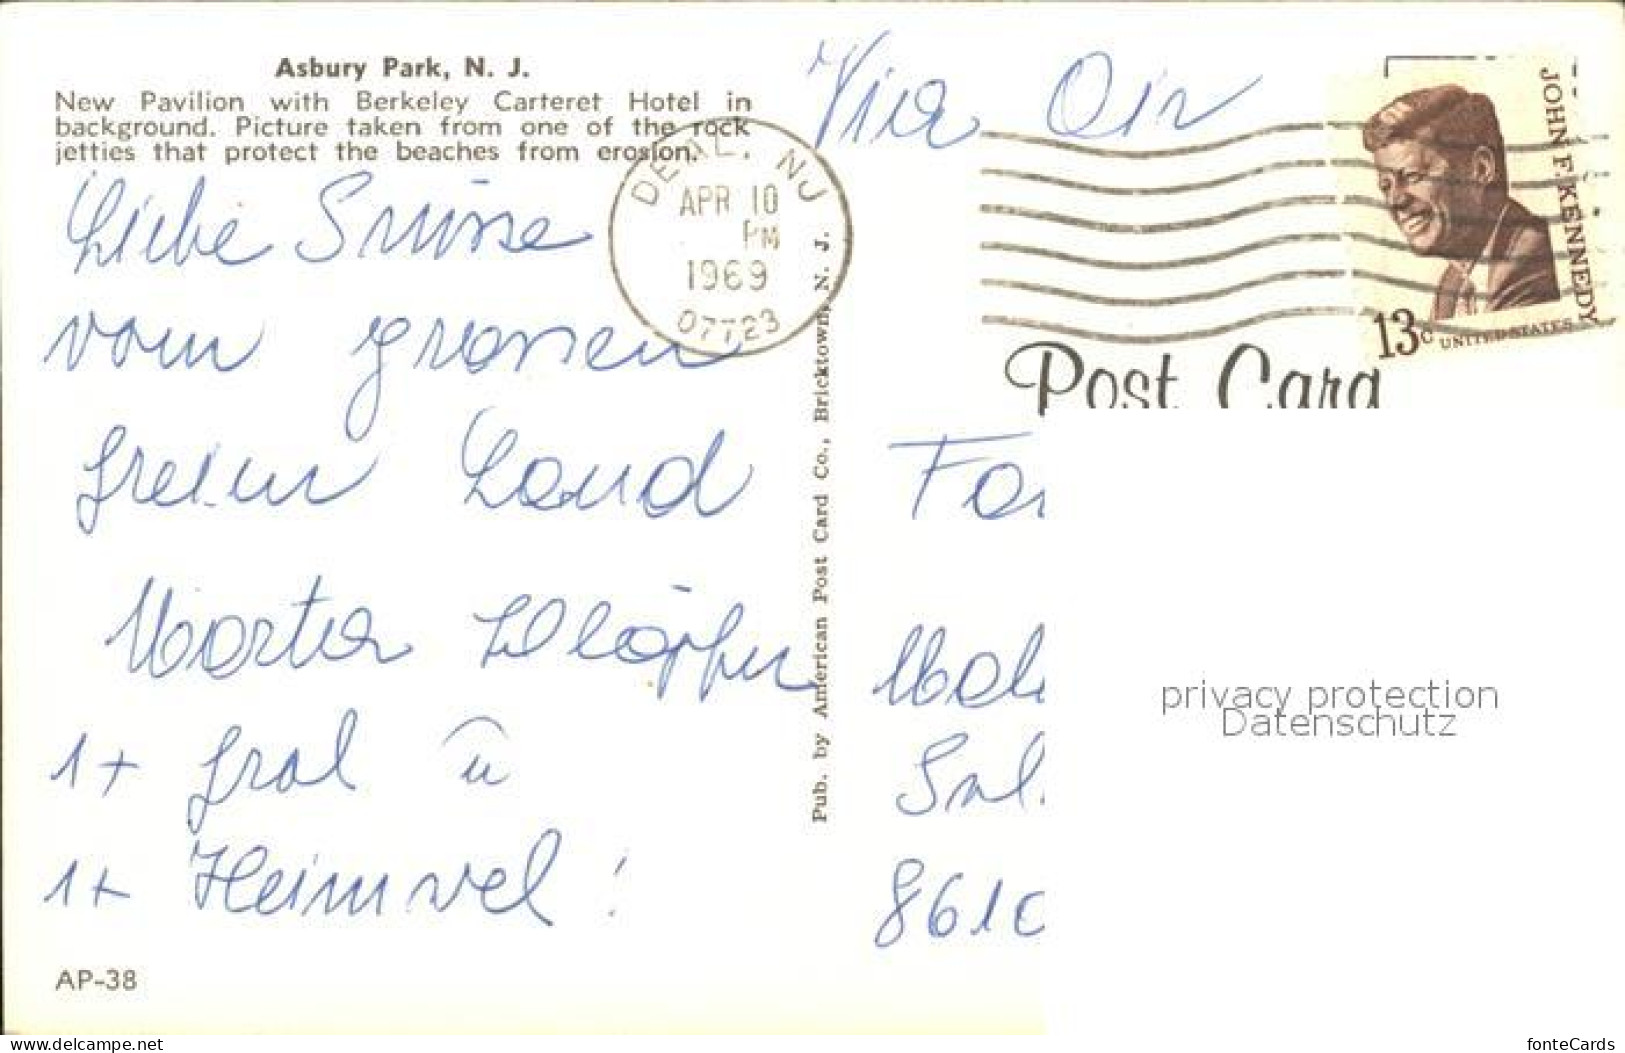 Asbury Park, N. J.
New Pavilion with Berkeley Carteret Hotel in
background. Picture taken from one of the rock
jetties that protect the beaches from erosion.
Via Air
DEAL, NJ
APR 10
PM
1969
07723
JOHN F. KENNEDY
13c UNITED STATES
Post Card
Liebe Grüsse
vom grossen
freien Land
Marta
1x
u
1x
!
AP-38
Pub. by American Post Card Co., Bricktown, N. J.
Fa
8610
privacy protection
Datenschutz
www.delcampe.net
fonteCards